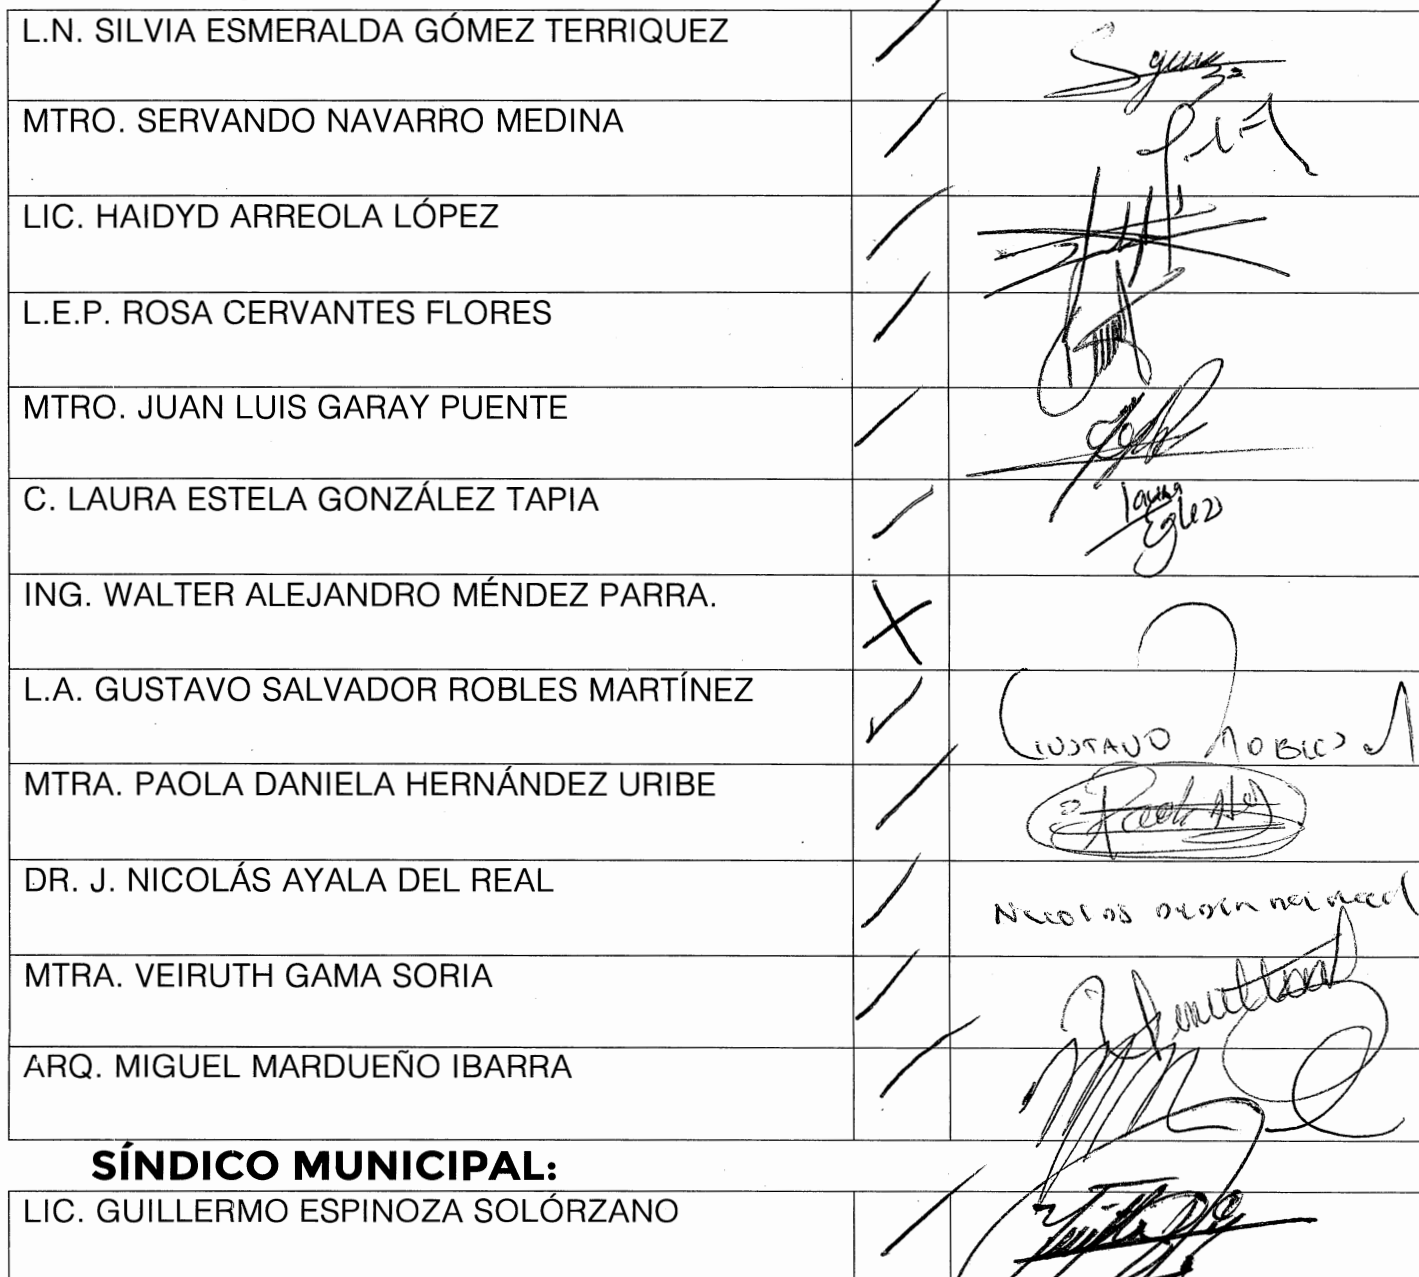 L.N. SILVIA ESMERALDA GÓMEZ TERRIQUEZ
MTRO. SERVANDO NAVARRO MEDINA
LIC. HAIDYD ARREOLA LÓPEZ
L.E.P. ROSA CERVANTES FLORES
MTRO. JUAN LUIS GARAY PUENTE
C. LAURA ESTELA GONZÁLEZ TAPIA
Laura
EGlez
ING. WALTER ALEJANDRO MÉNDEZ PARRA.
L.A. GUSTAVO SALVADOR ROBLES MARTÍNEZ
GUSTAVO ROBLES M
MTRA. PAOLA DANIELA HERNÁNDEZ URIBE
DR. J. NICOLÁS AYALA DEL REAL
MTRA. VEIRUTH GAMA SORIA
ARQ. MIGUEL MARDUEÑO IBARRA
SÍNDICO MUNICIPAL:
LIC. GUILLERMO ESPINOZA SOLÓRZANO